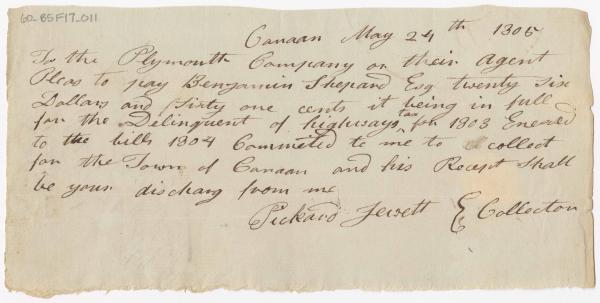 60-B5F17-011
Canaan May 24th 1805
To the Plymouth Company or their Agent
Pleas to pay Benjamin Shepard Esq twenty Six
Dollars and Sixty one cents it being in full
for the Delinquent of highways tax for 1803 Enered
to the bills 1804 Commited to me to collect
for the Town of Canaan and his Recept Shall
be your discharg from me
Pickard Jewett Collector